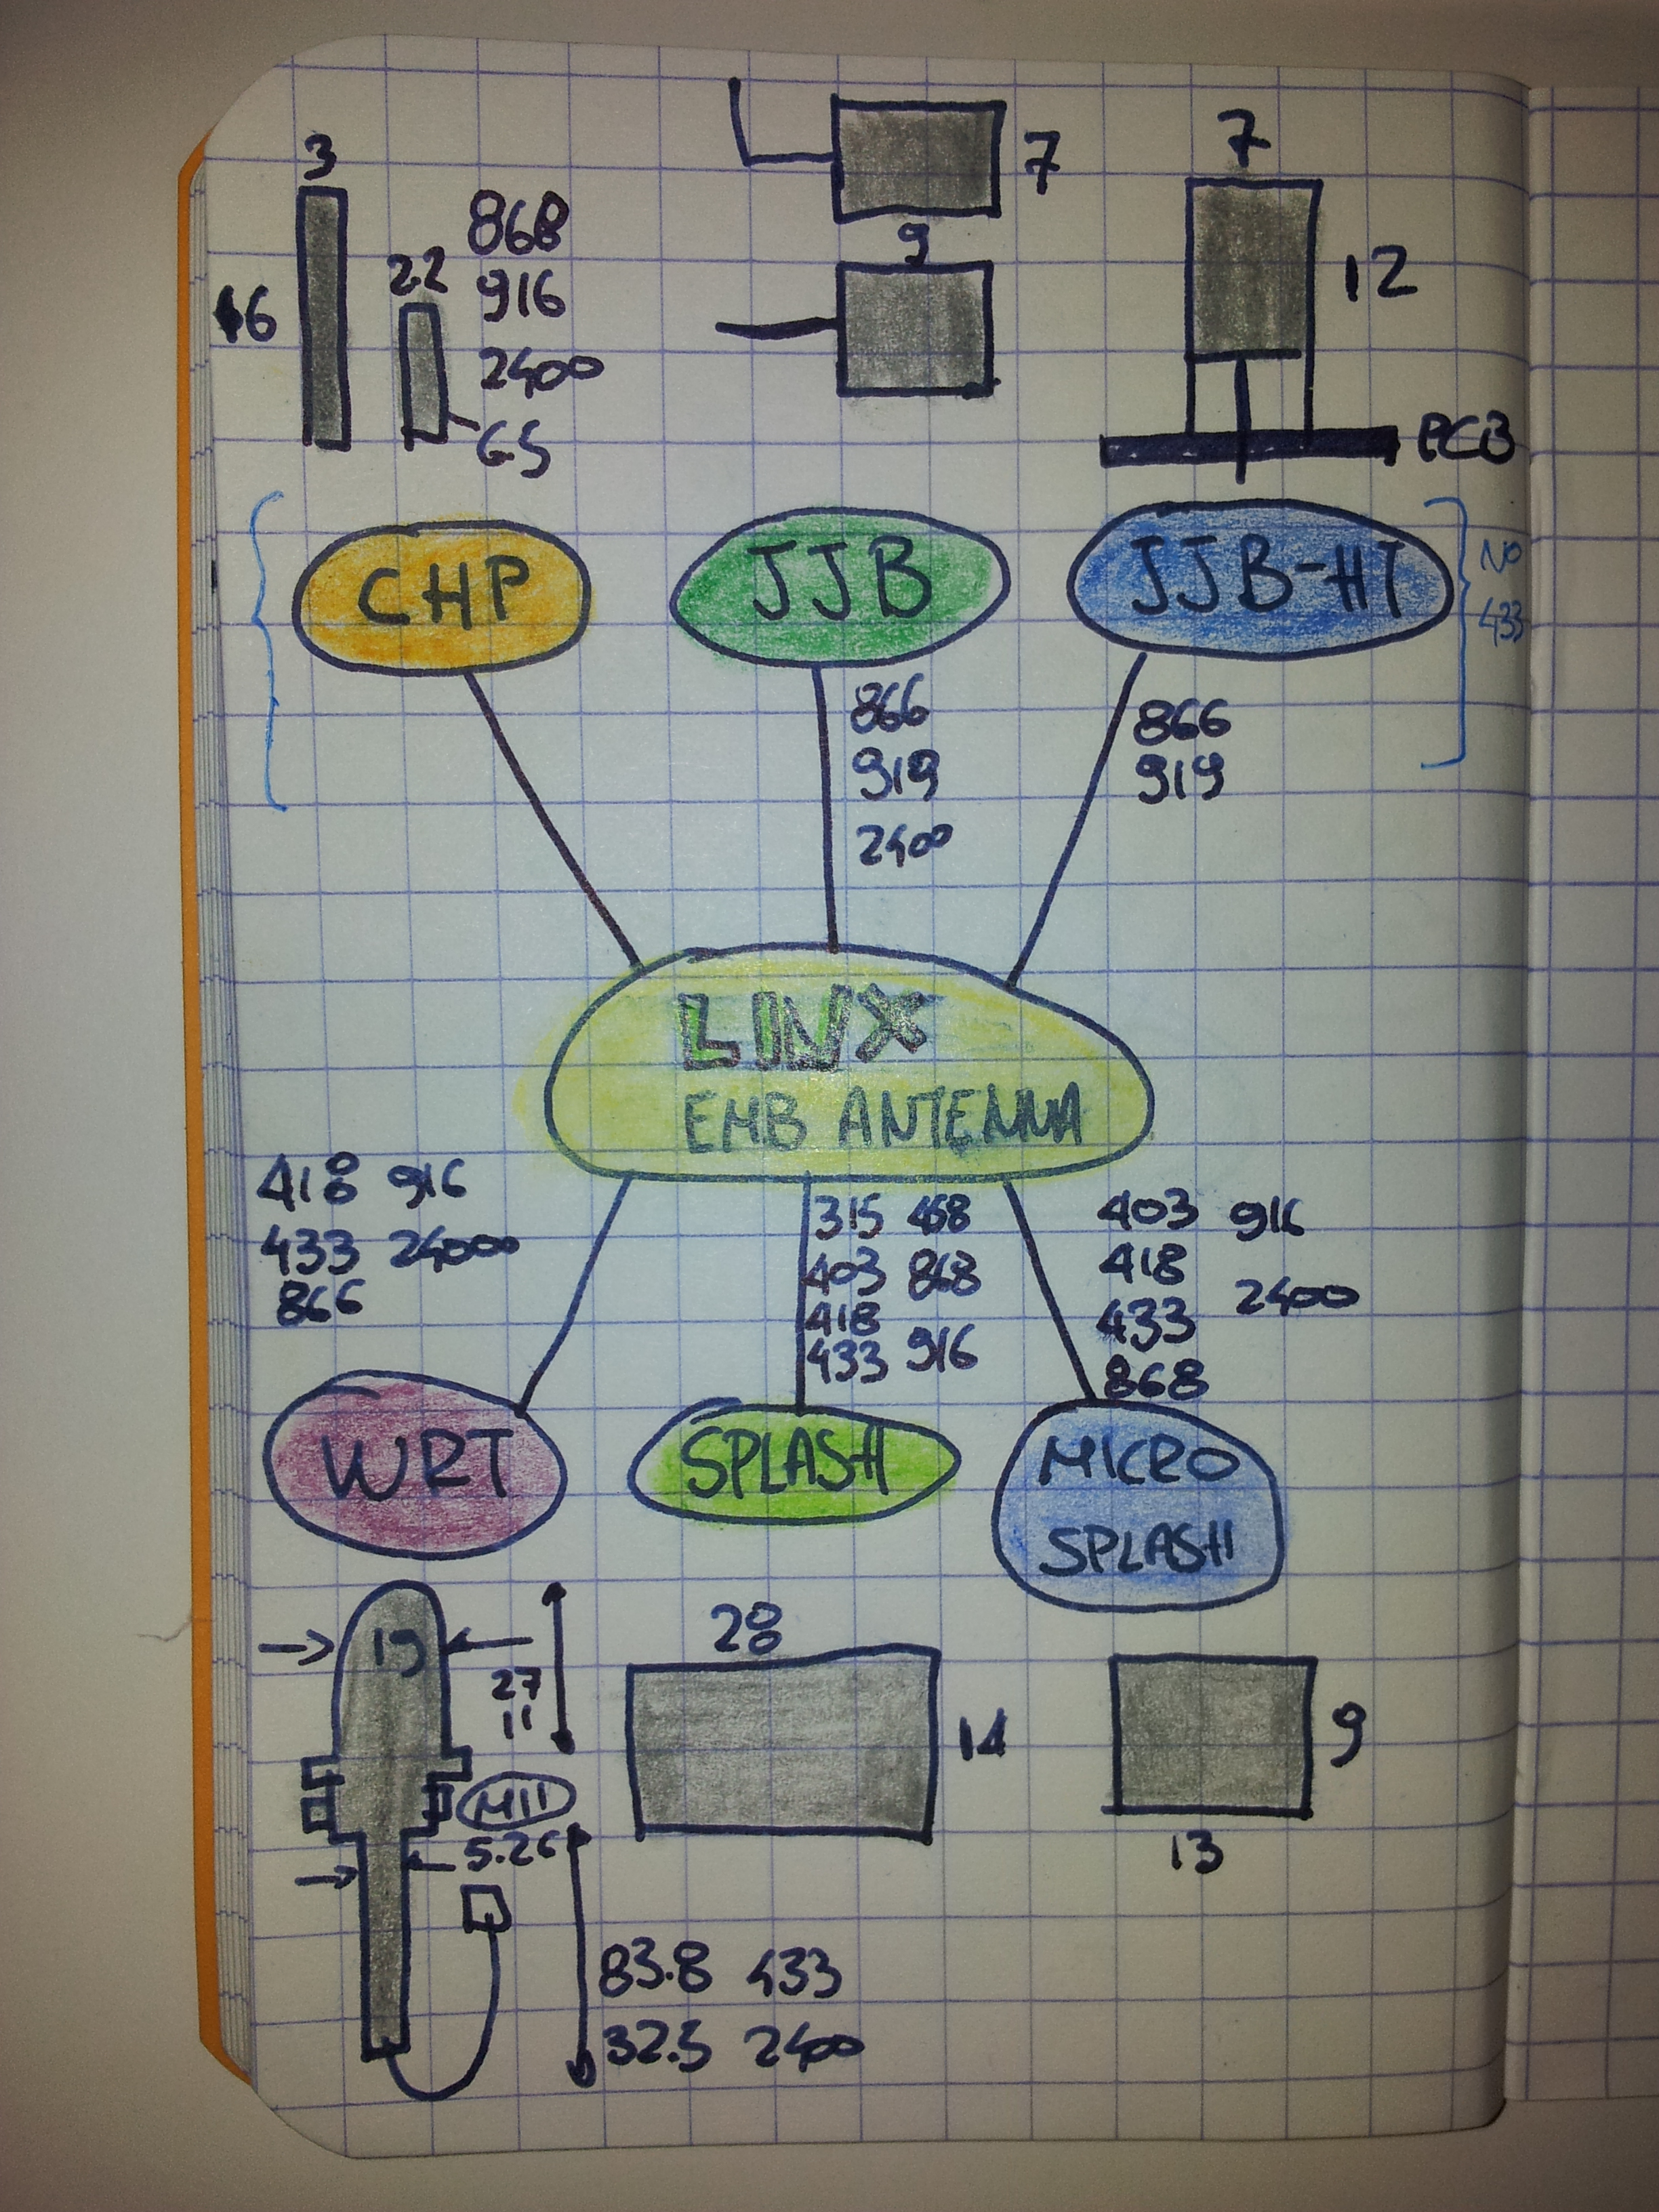 3
16
2.2
868
916
2400
6.5
7
9
7
12
PCB
CHP
JJB
JJB-HT
NO
433
866
919
2400
866
919
LINX
EMB ANTENNA
418 916
433 24000
866
315 458
403 868
418
433 916
403 916
418
433 2400
868
WRT
SPLASH
MICRO
SPLASH
19
27
11
M11
5.26
83.8 433
32.5 2400
28
14
9
13